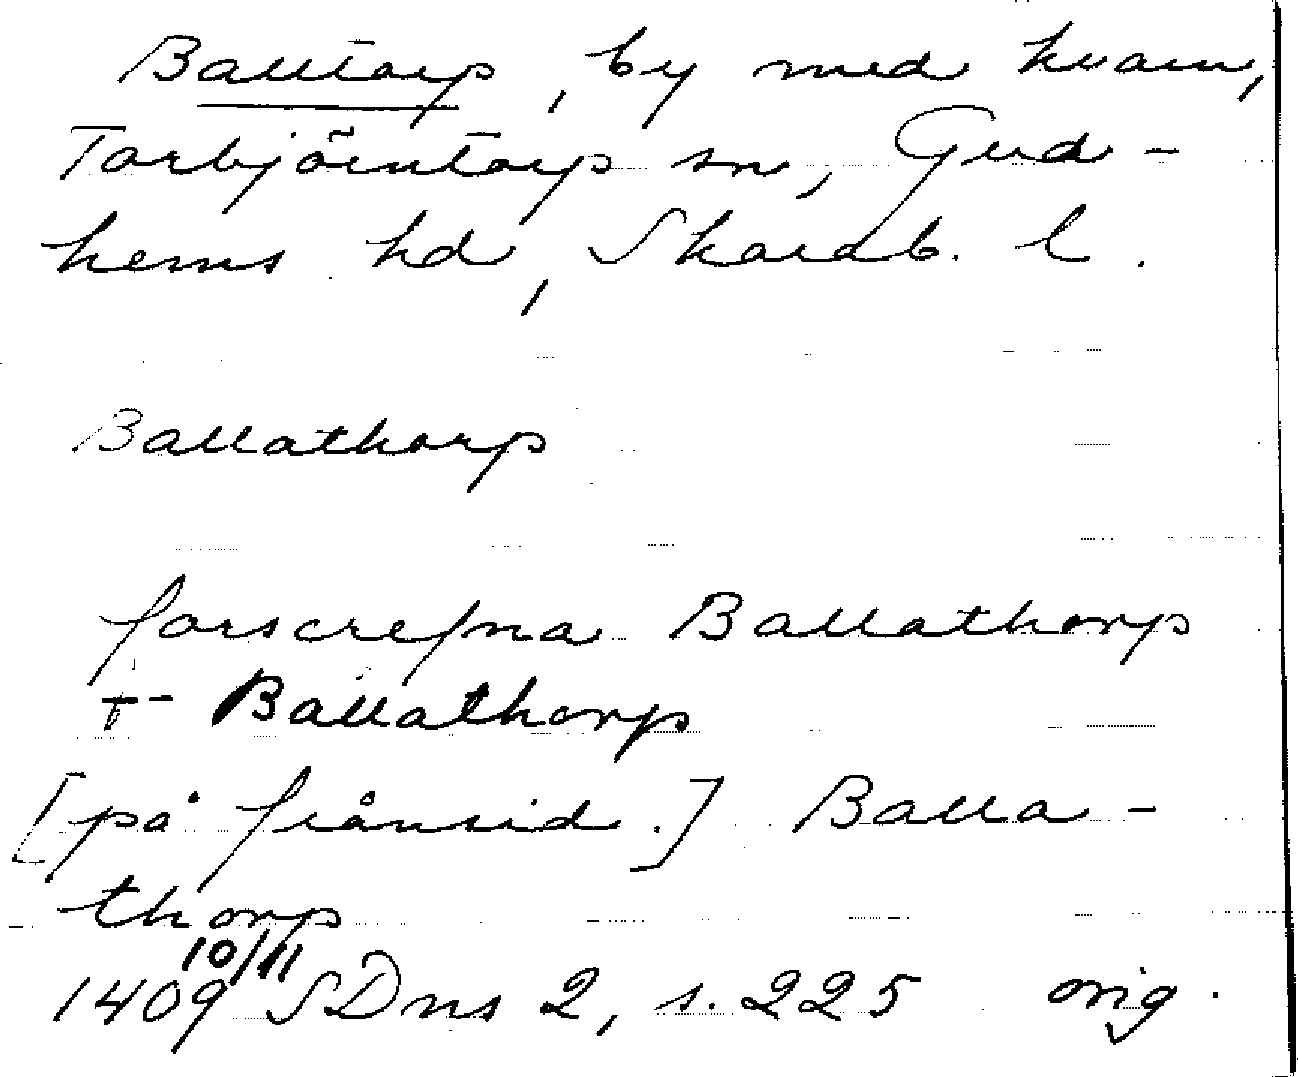 Balltorp, by med kvarn,
Torbjörntorp sn, Gud-
hems hd, Skarab. l.
Ballathorp
forscrefna Ballathorp
+- Ballathorp
[på frånsid.] Balla-
thorp
1409 10/11 SDns 2, s. 225 orig.